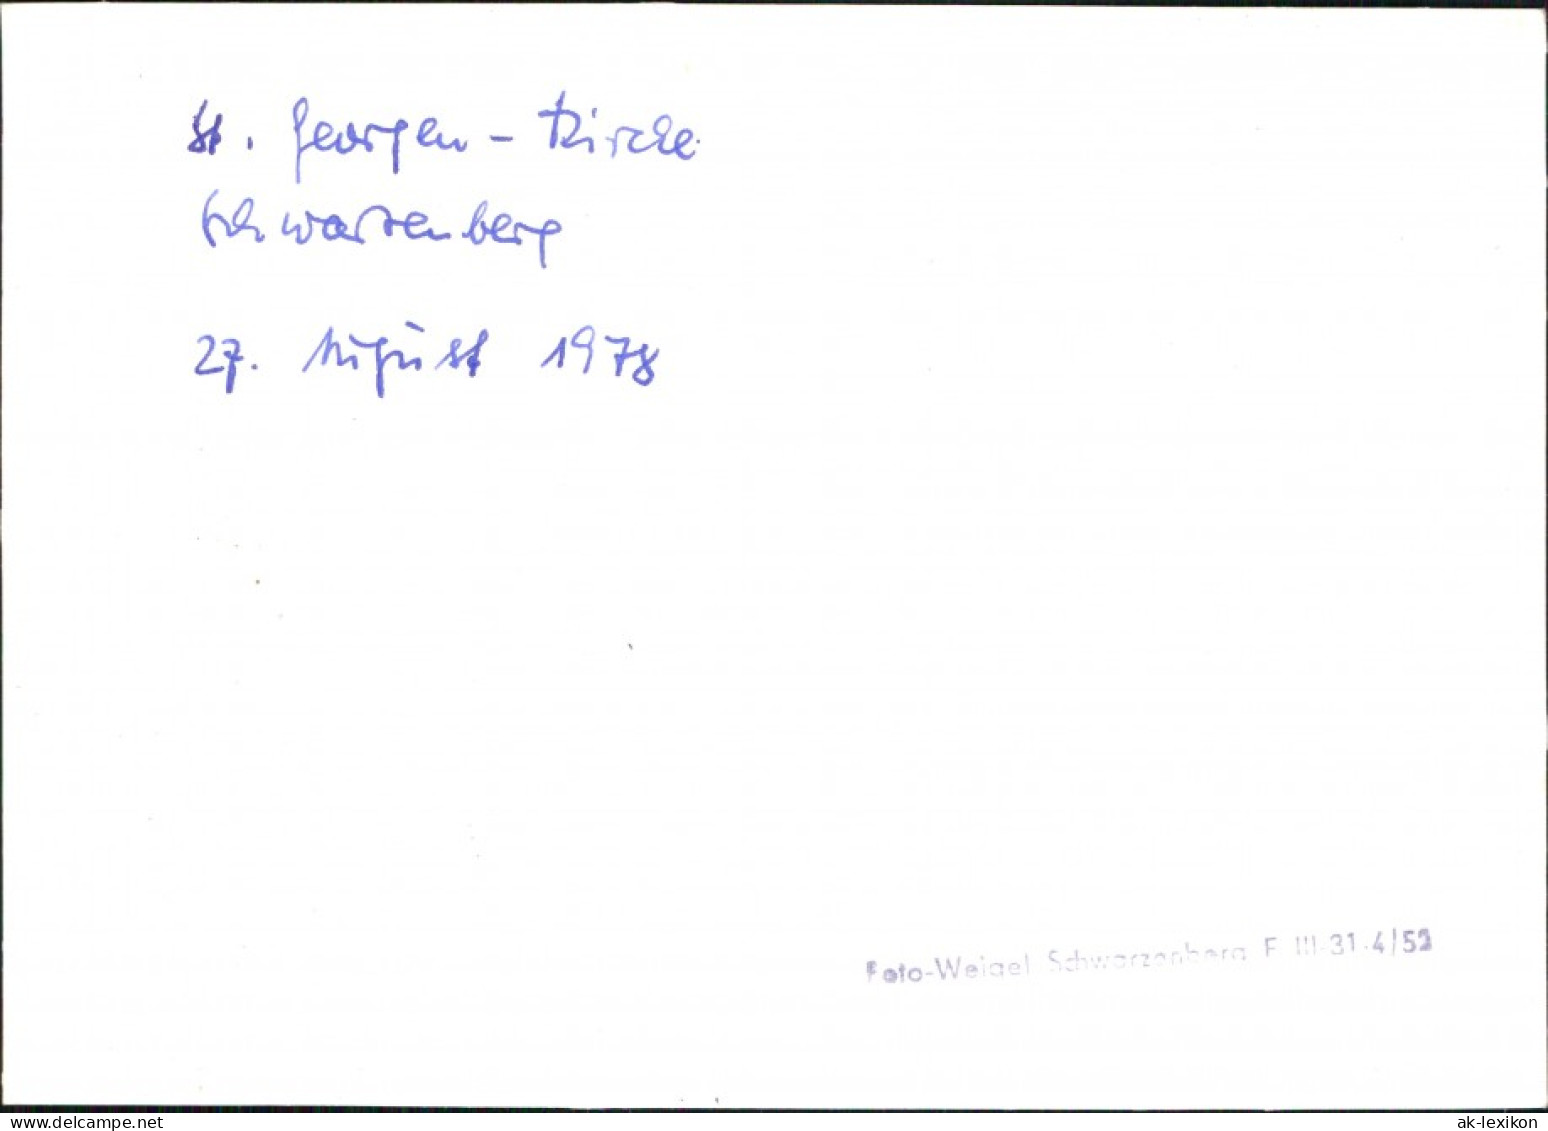 St. Georgen - Kirche
Schwarzenberg
27. August 1978
Foto-Weigel Schwarzenberg F III-31-4/52
www.delcampe.net
ak-lexikon